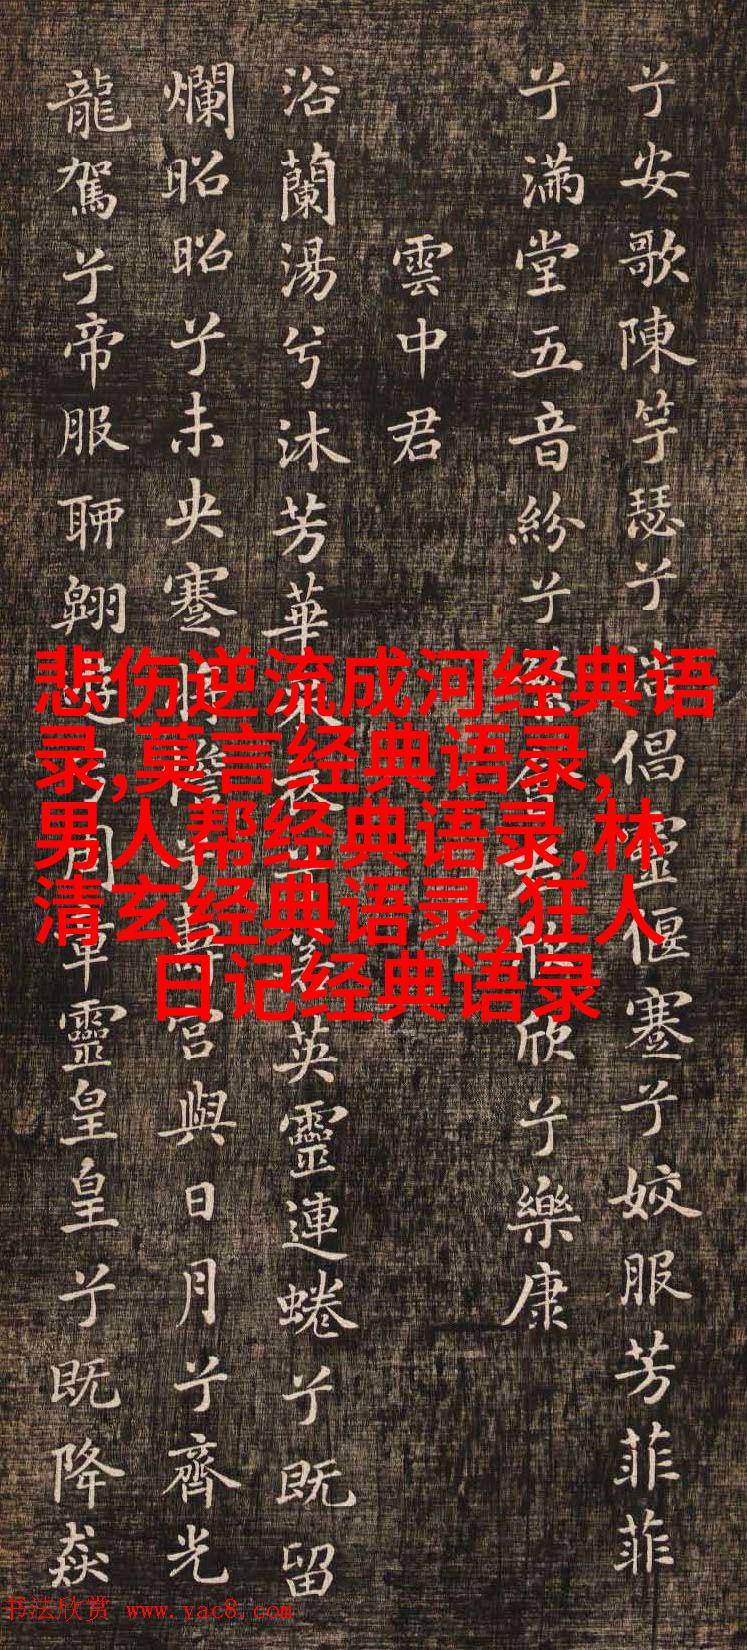 兮安歌陳竽瑟兮浩倡靈偃蹇兮姣服芳菲菲
兮滿堂五音紛兮繁會君欣欣兮樂康
雲中君
浴蘭湯兮沐芳華采衣兮若英靈連蜷兮既留
爛昭昭兮未央蹇將憺兮壽宮與日月兮齊光
龍駕兮帝服聊翱遊兮周章靈皇皇兮既降猋
悲伤逆流成河经典语
录,莫言经典语录,
男人帮经典语录,林
清玄经典语录,狂人
日记经典语录
书法欣赏 www.yac8.com